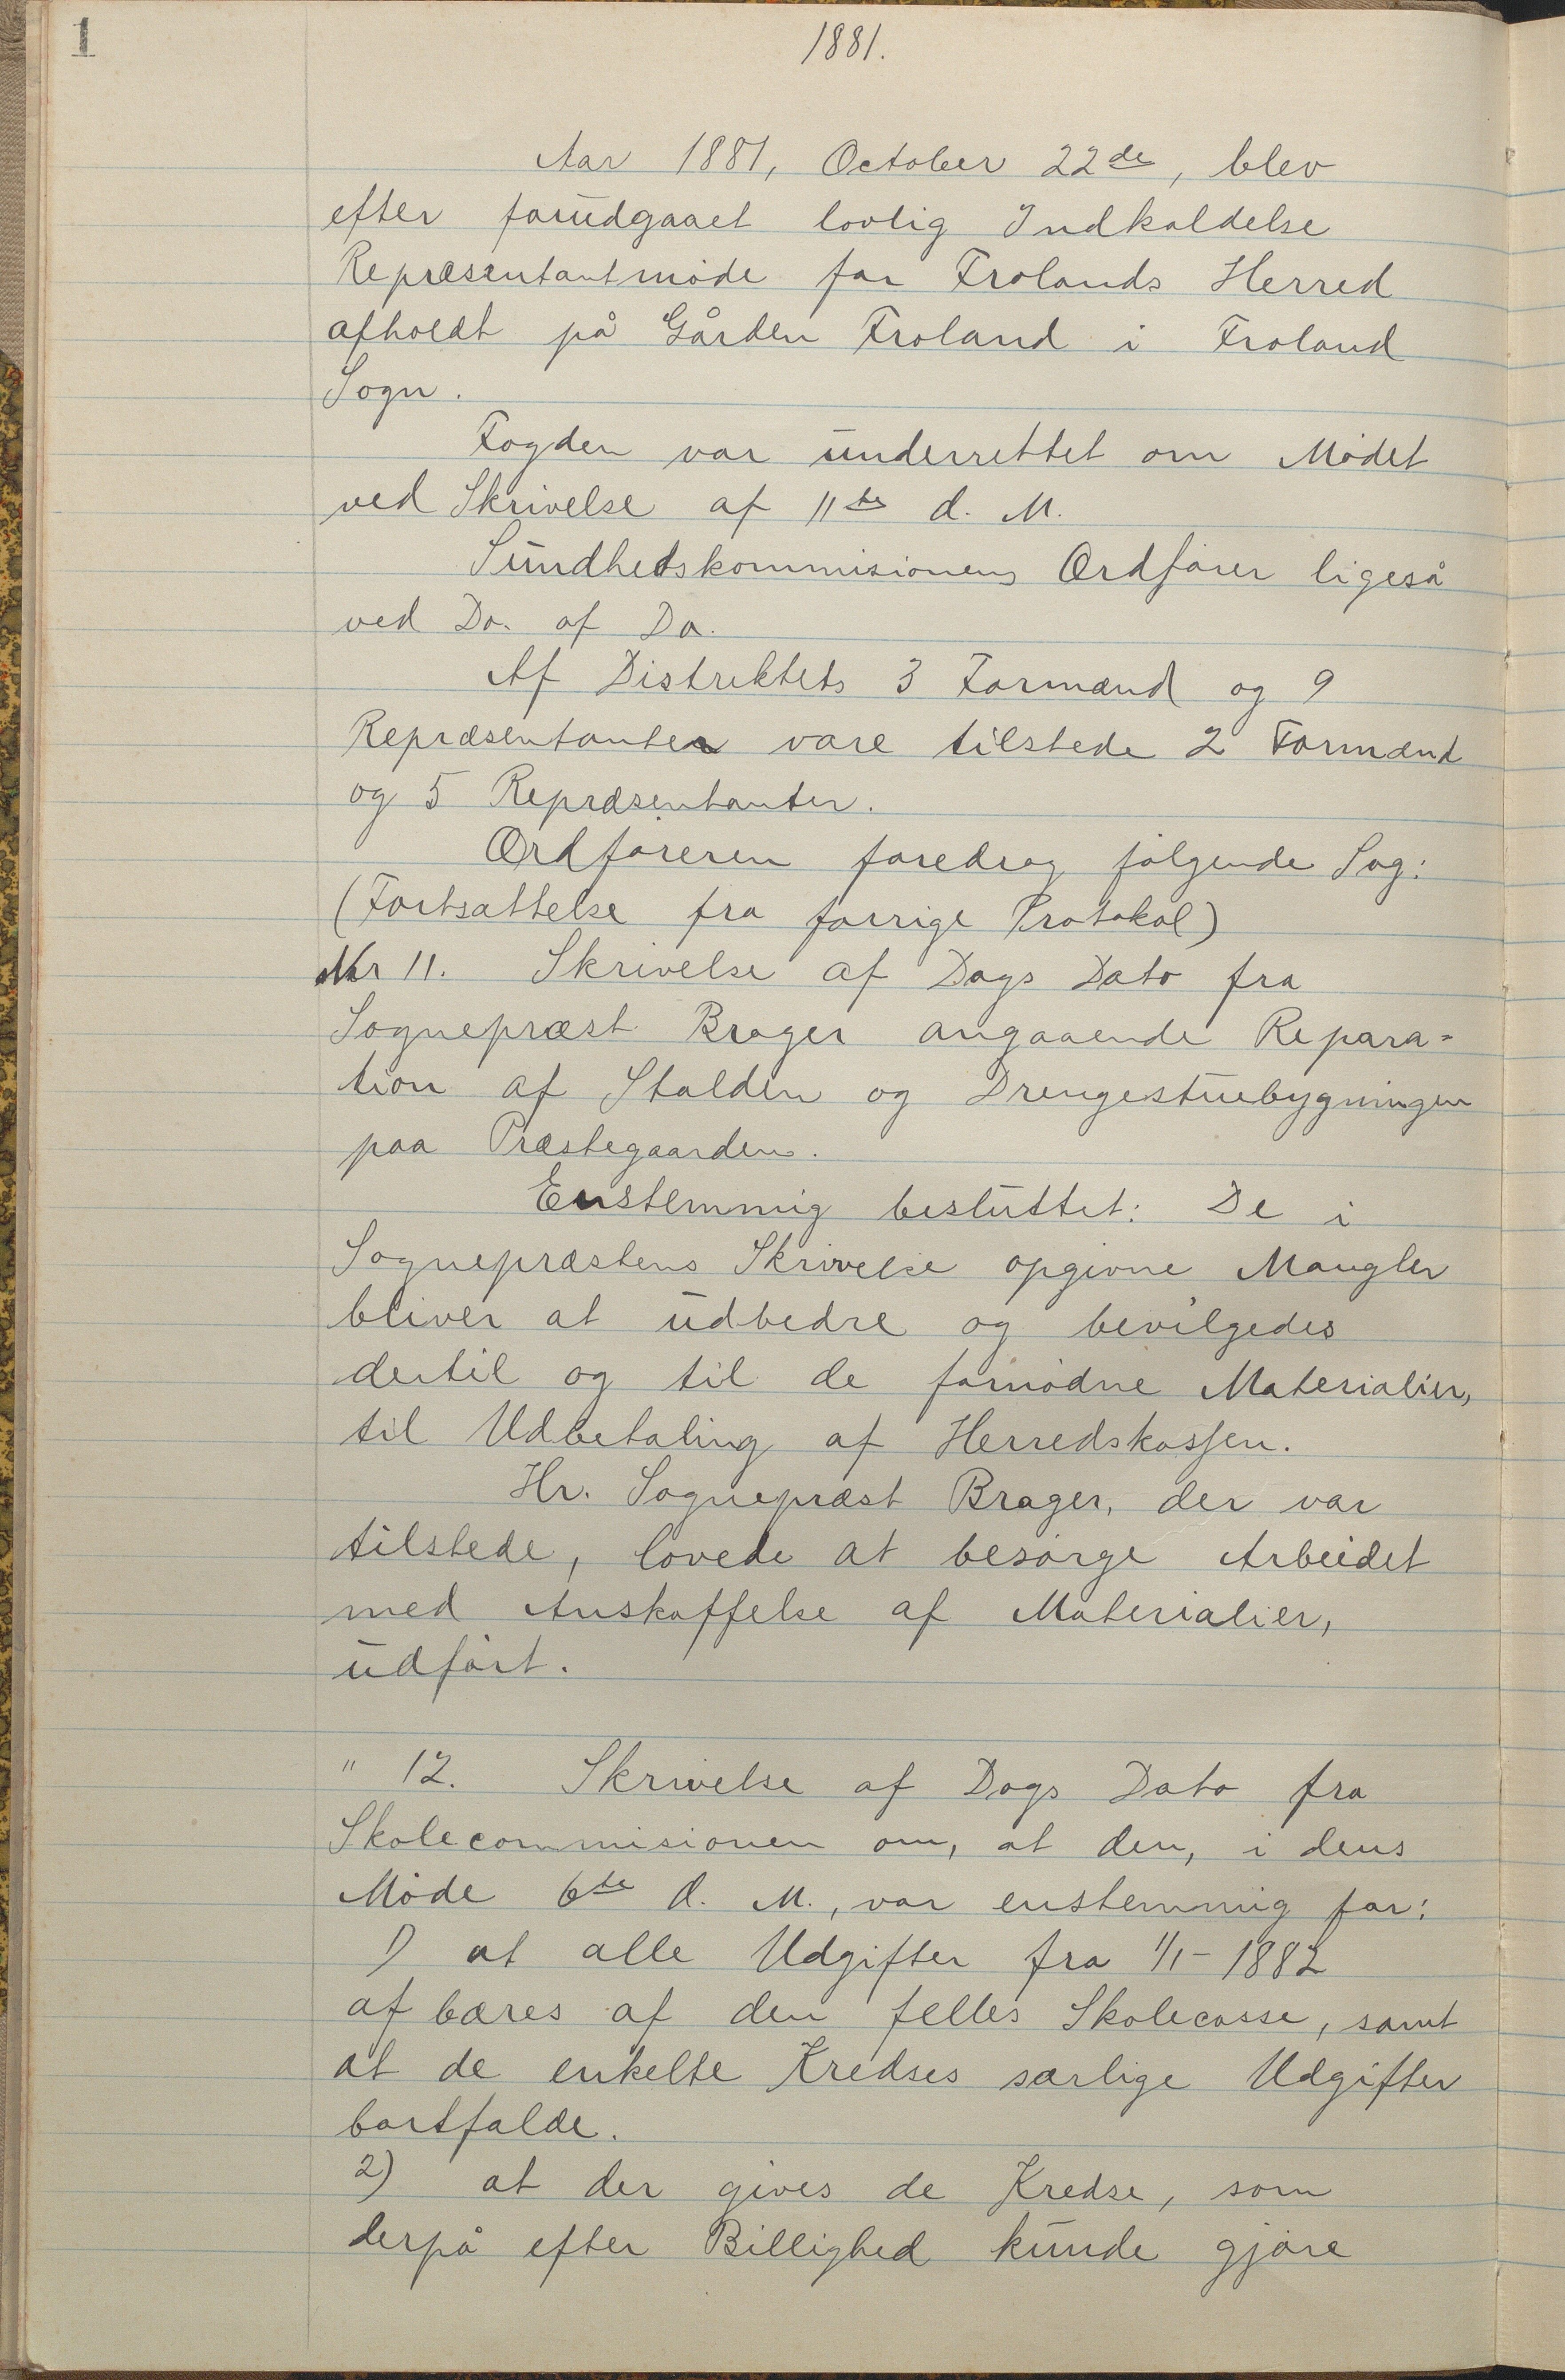 1
1881.
Aar 1881, October 22de, blev
efter forudgaaet lovlig Indkaldelse
Repræsentantmöde for Frolands Herred
afholdt på Gården Froland i Froland
Sogn.
Fogden var underrettet om Mödet
ved Skrivelse af 11te d. M.
Sundhedskommisionens Ordförer ligeså
ved Do. af Do.
Af Distriktets 3 Formænd og 9
Repræsentanter vare tilstede 2 Formænd
og 5 Repræsentanter.
Ordföreren foredrog fölgende Sag:
(Fortsættelse fra forrige Protokol)
Nr 11. Skrivelse af Dags Dato fra
Sognepræst Brager angaaende Repara=
tion af Stalden og Drengestuebygningen
paa Præstegaarden.
Enstemmig besluttet: De i
Sognepræstens Skrivelse opgivne Mangler
bliver at udbedre og bevilgedes
dertil og til de fornödne Materialier,
til Udbetaling af Herredskassen.
Hr. Sognepræst Brager, der var
tilstede, lovede at besörge Arbeidet
med Anskaffelse af Materialier,
udfört.
" 12. Skrivelse af Dags Dato fra
Skolecommisionen om, at den, i dens
Möde 6te d. M., var enstemmig for:
1) at alle Udgifter fra 1/1-1882
afbæres af den felles Skolecasse, samt
at de enkelte Kredses særlige Udgifter
bortfalde.
2) at der gives de Kredse, som
derpå efter Billighed kunde gjöre